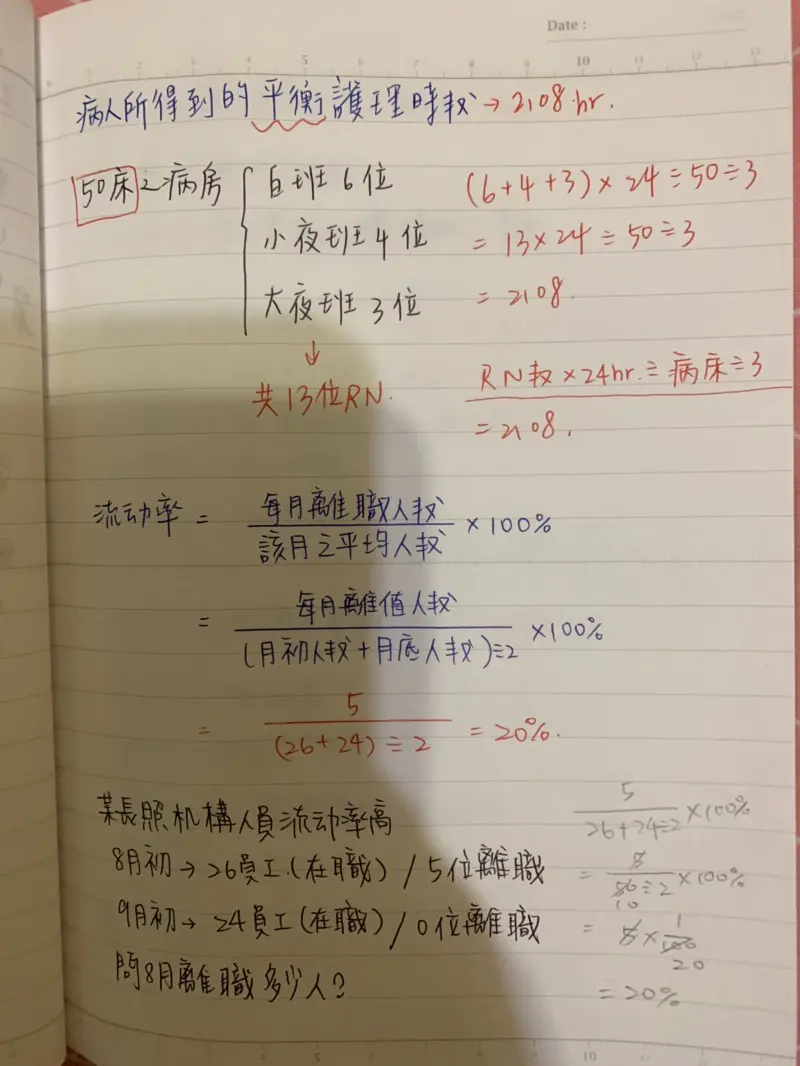 Date :
病人所得到的平衡護理時数→2.08 hr.
50床之病房
白班6位
小夜班4位
大夜班3位
↓
共13位RN.
(6+4+3)×24÷50÷3
= 13×24÷50÷3
= 2.08.
RN数×24hr.÷病床÷3
= 2.08.
流动率 = 每月離職人数 / 該月之平均人数 ×100%
= 每月離值人数 / (月初人数+月底人数)÷2 ×100%
= 5 / (26+24)÷2 = 20%.
某長照机構人員流动率高
8月初→26員工(在職) / 5位離職
9月初→24員工(在職) / 0位離職
問8月離職多少人?
5 / 26+24÷2 ×100%
= 20%